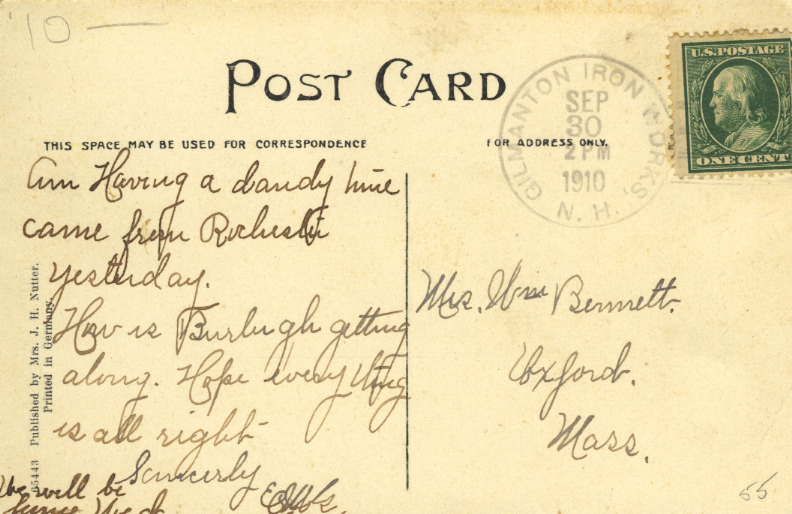 '10 —
POST CARD
THIS SPACE MAY BE USED FOR CORRESPONDENCE
FOR ADDRESS ONLY.
GILMANTON IRON WORKS,
SEP
30
2 PM
1910
N. H.
U.S. POSTAGE
ONE CENT
Am Having a dandy time
came from Rochester
yesterday.
How is Burleigh getting
along. Hope every thing
is all right
Sincerely
We will be
Mrs. Wm Bennett.
Oxford.
Mass.
55
65443 Published by Mrs. J. H. Nutter.
Printed in Germany.